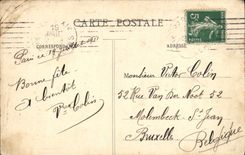 CARTE POSTALE
CORRESPONDANCE
ADRESSE
Bonne fête
à bientôt
Vr Colin
Monsieur Victor Colin
52 Rue Van der Noot 52
Molembeck St Jean
Bruxelles
Belgique